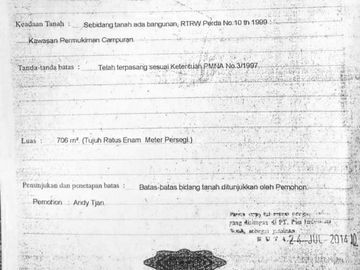 Keadaan Tanah : Sebidang tanah ada bangunan, RTRW Perda No.10 th 1999 :
Kawasan Permukiman Campuran.
Tanda-tanda batas : Telah terpasang sesuai Ketentuan PMNA No.3/1997.
Luas : 706 m² (Tujuh Ratus Enam Meter Persegi.)
Penunjukan dan penetapan batas : Batas-batas bidang tanah ditunjukkan oleh Pemohon.
Pemohon : Andy Tjan.
yang disimpan di PT.
24 JUL 2014